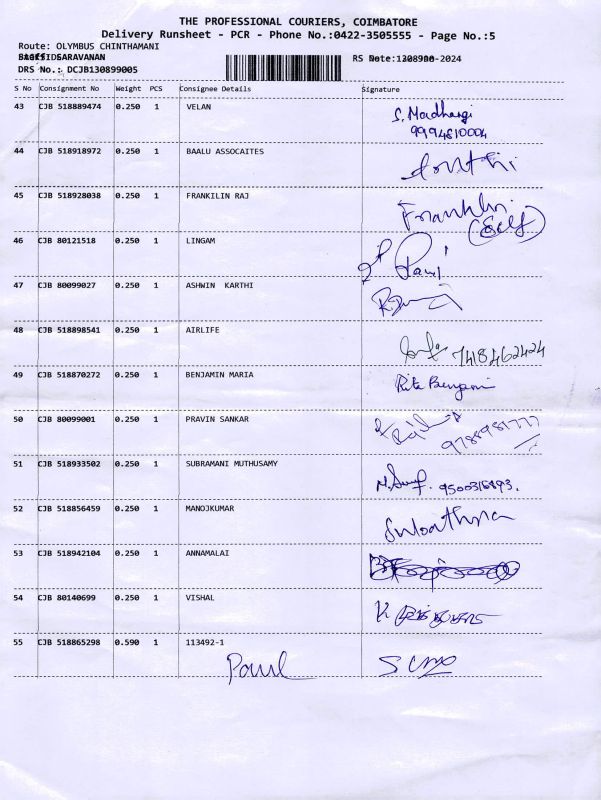 THE PROFESSIONAL COURIERS, COIMBATORE
Delivery Runsheet - PCR - Phone No.:0422-3505555 - Page No.:5
Route: OLYMBUS CHINTHAMANI
SARAVANAN
RS 2024
DRS No.: DCJB130899005
S No Consignment No Weight PCS Consignee Details Signature
43 CJB 518889474 0.250 1 VELAN S. Madhangi
9994810004
44 CJB 518918972 0.250 1 BAALU ASSOCAITES
45 CJB 518928038 0.250 1 FRANKILIN RAJ Franklin
(Self)
46 CJB 80121518 0.250 1 LINGAM
47 CJB 80099027 0.250 1 ASHWIN KARTHI
48 CJB 518898541 0.250 1 AIRLIFE 7418462424
49 CJB 518870272 0.250 1 BENJAMIN MARIA Rita Benjamin
50 CJB 80099001 0.250 1 PRAVIN SANKAR 9788981777
51 CJB 518933502 0.250 1 SUBRAMANI MUTHUSAMY 9500316893.
52 CJB 518856459 0.250 1 MANOJKUMAR
53 CJB 518942104 0.250 1 ANNAMALAI
54 CJB 80140699 0.250 1 VISHAL
55 CJB 518865298 0.590 1 113492-1
Paul